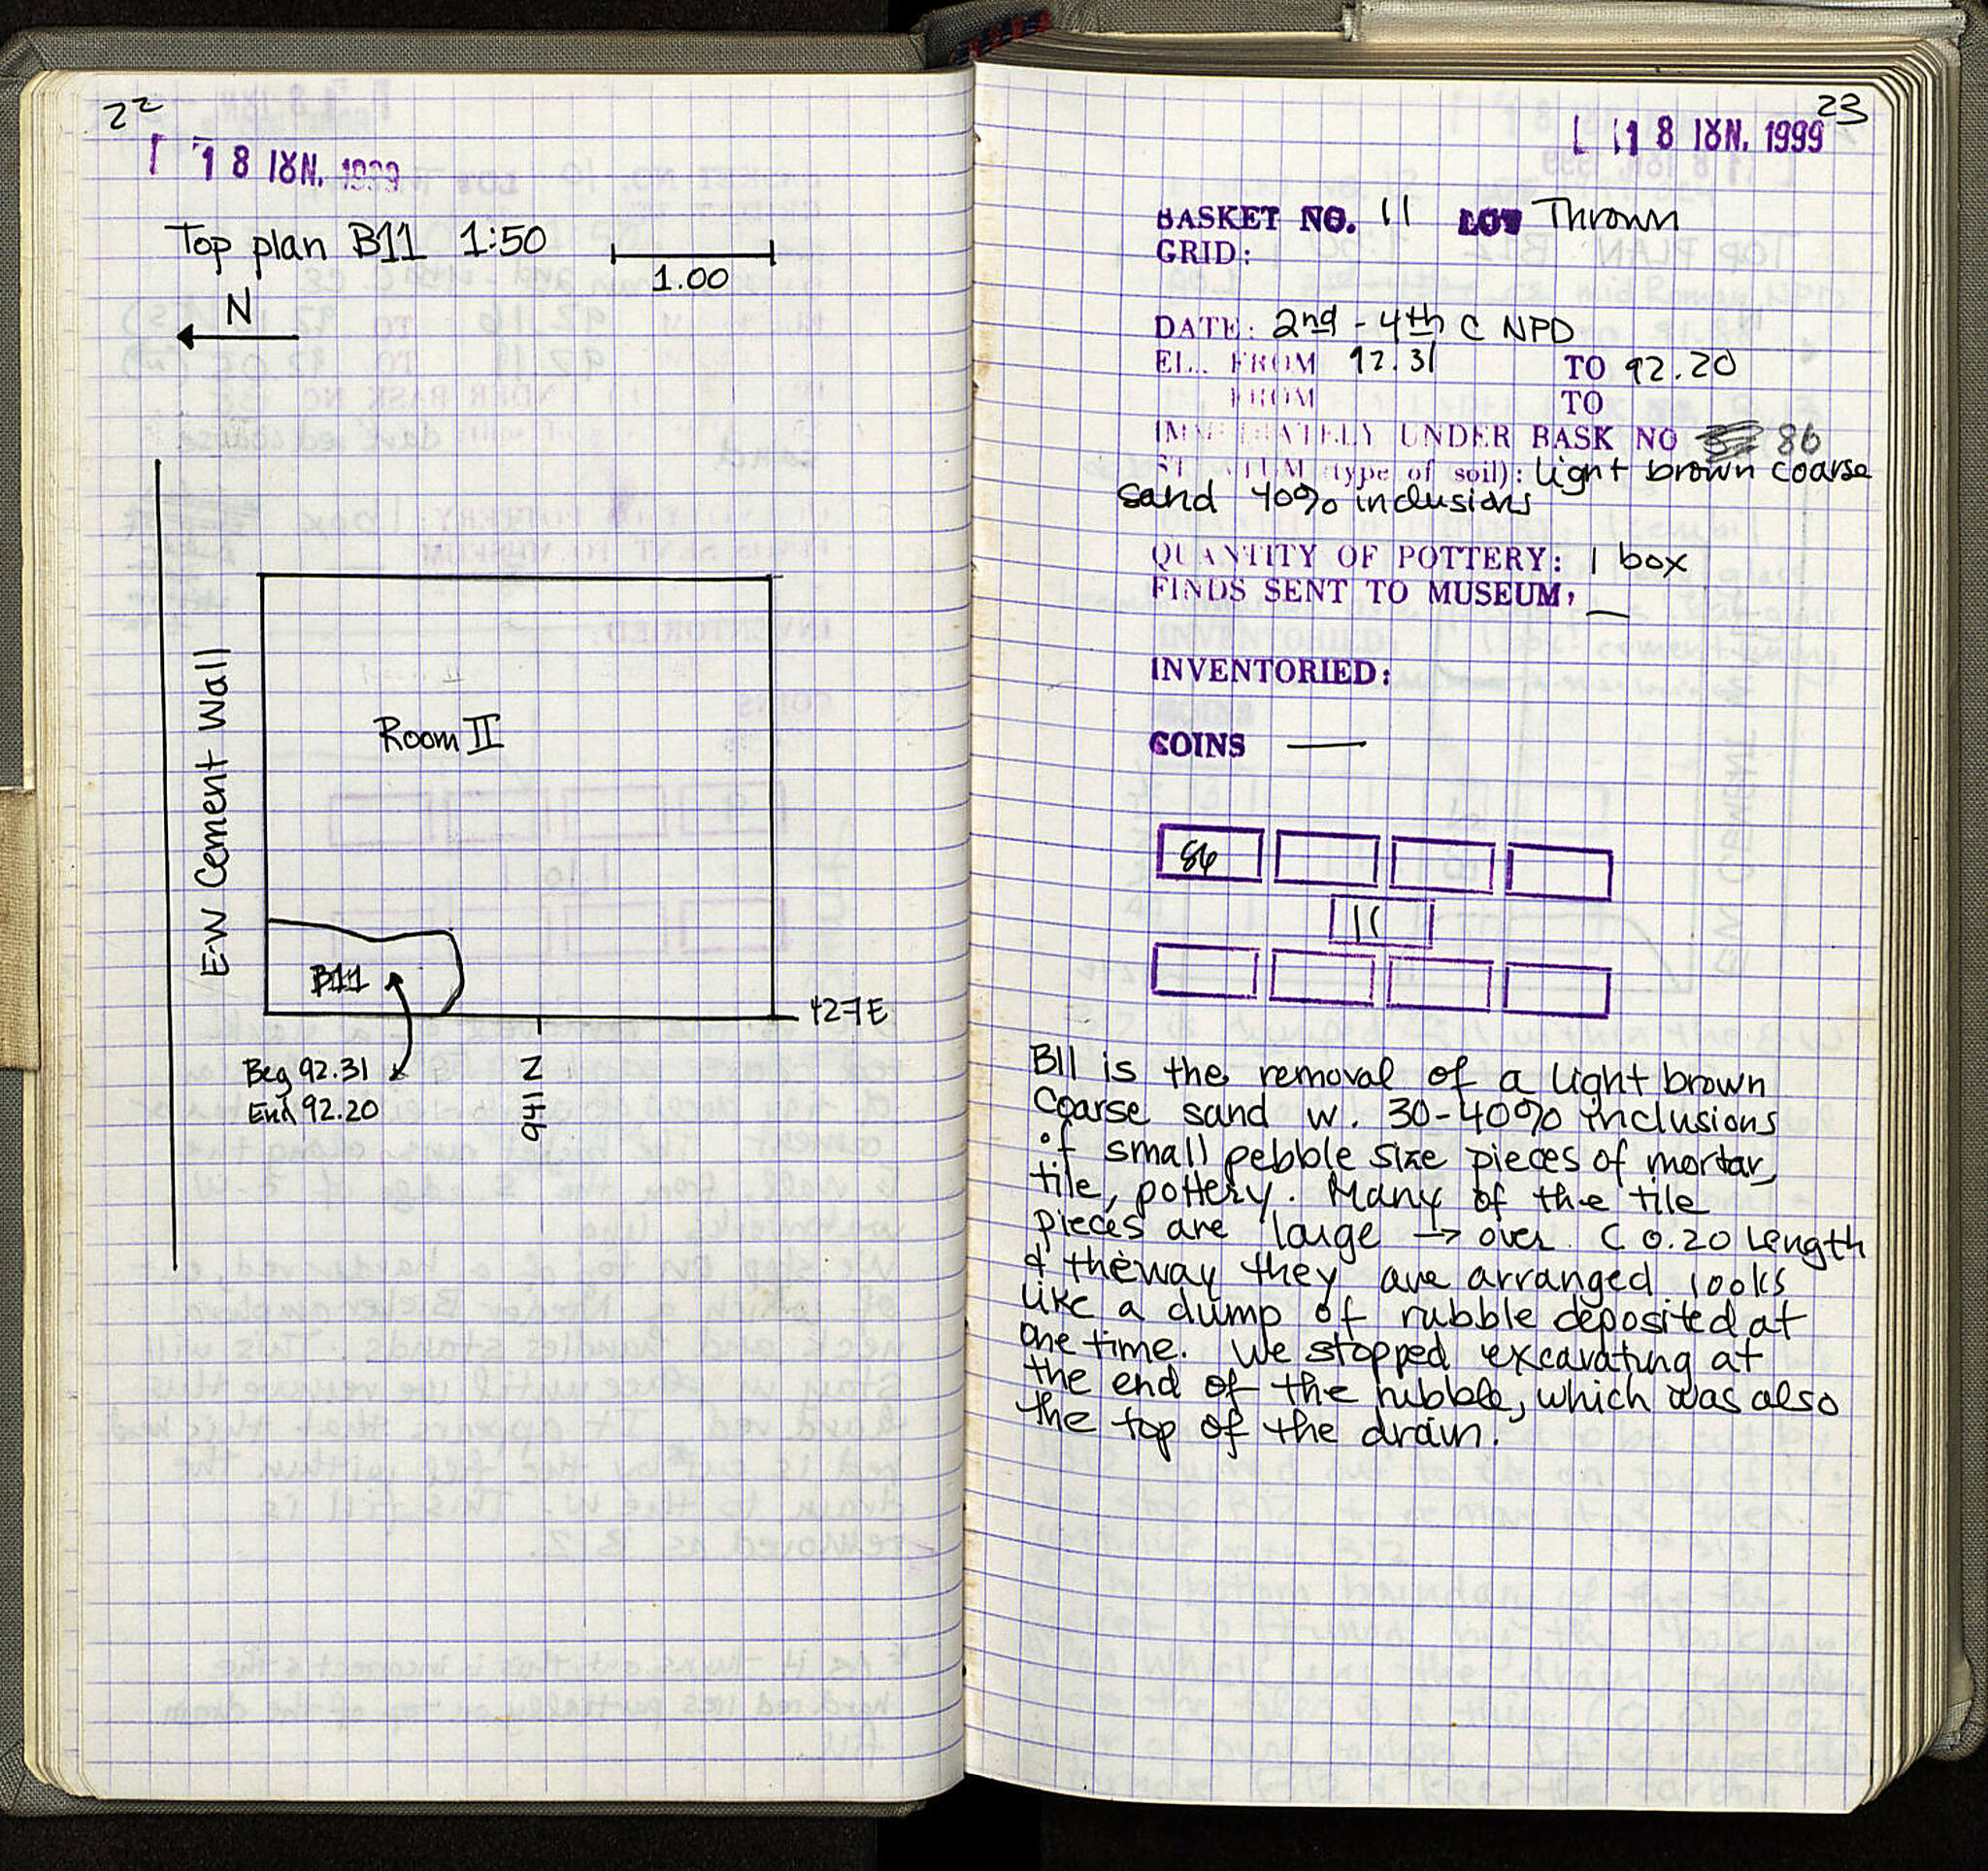 22
18 ΙΟΥΝ. 1999
Top plan B11 1:50
1.00
N
E-W Cement Wall
Room II
B11
427E
Beg 92.31
End 92.20
946 N
23
18 ΙΟΥΝ. 1999
BASKET NO. 11 LOT Thrown
GRID:
DATE: 2nd - 4th C NPD
EL. FROM 92.31 TO 92.20
FROM TO
IMMEDIATELY UNDER BASK NO 86
STRATUM (type of soil): light brown coarse
sand 40% inclusions
QUANTITY OF POTTERY: 1 box
FINDS SENT TO MUSEUM: —
INVENTORIED:
COINS —
86
11
B11 is the removal of a light brown
coarse sand w. 30-40% inclusions
of small pebble size pieces of mortar,
tile, pottery. Many of the tile
pieces are large → over c 0.20 length
& the way they are arranged looks
like a dump of rubble deposited at
one time. We stopped excavating at
the end of the rubble, which was also
the top of the drain.